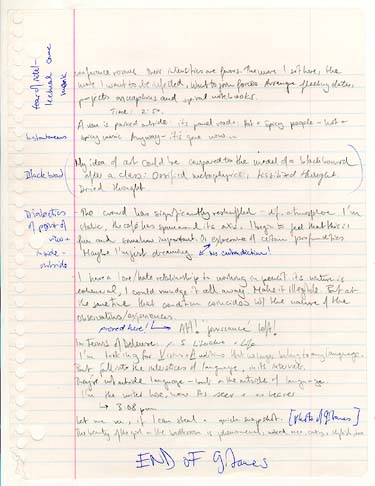 fear of intel-
lectual one
mask
conference rooms their intensities are fluxes. The more I sit here, the
more I want to be infected, want to join forces. Arrange fleeting dates,
projects on napkins and spiral notebooks.
Time: 2:50.
A van is parked outside: its panel reads: Hot + Spicy people - hot +
spicy music Anyway - it's gone now...
Instantaneous
Blackboard
My idea of art could be compared to the model of a blackboard
after a class: Ossified metaphysics, fossilized thought.
Dried thought
Dialectics
of point of
view +
inside -
outside
The crowd has significantly reshuffled - dif. atmosphere. I'm
static, the café has spun around its axis. I begin to feel that this is
fun and somehow important. Or expressive of certain profundities
Maybe I'm just dreaming. no contradiction!
I have a love/hate relationship to working in pencil its nature is
ephemeral, I could smudge it all away. Make it illegible. But at
the same time that condition coincides w/ the nature of the
observations/experiences.
moved here! AH! jouissance left!
In Terms of Deleuze:
I'm looking for Visions + Auditions that no longer belong to any language.
But fall into the interstices of language, in its intervals.
They're not outside language - but the outside of language.
I'm the writer here, now As a seer + as hearer
3:08 pm
Let me see, if I can steal a quick snapshot. [photo of gitanes]
The beauty of the girl - the bathroom is phenomenal,
END OF gitanes